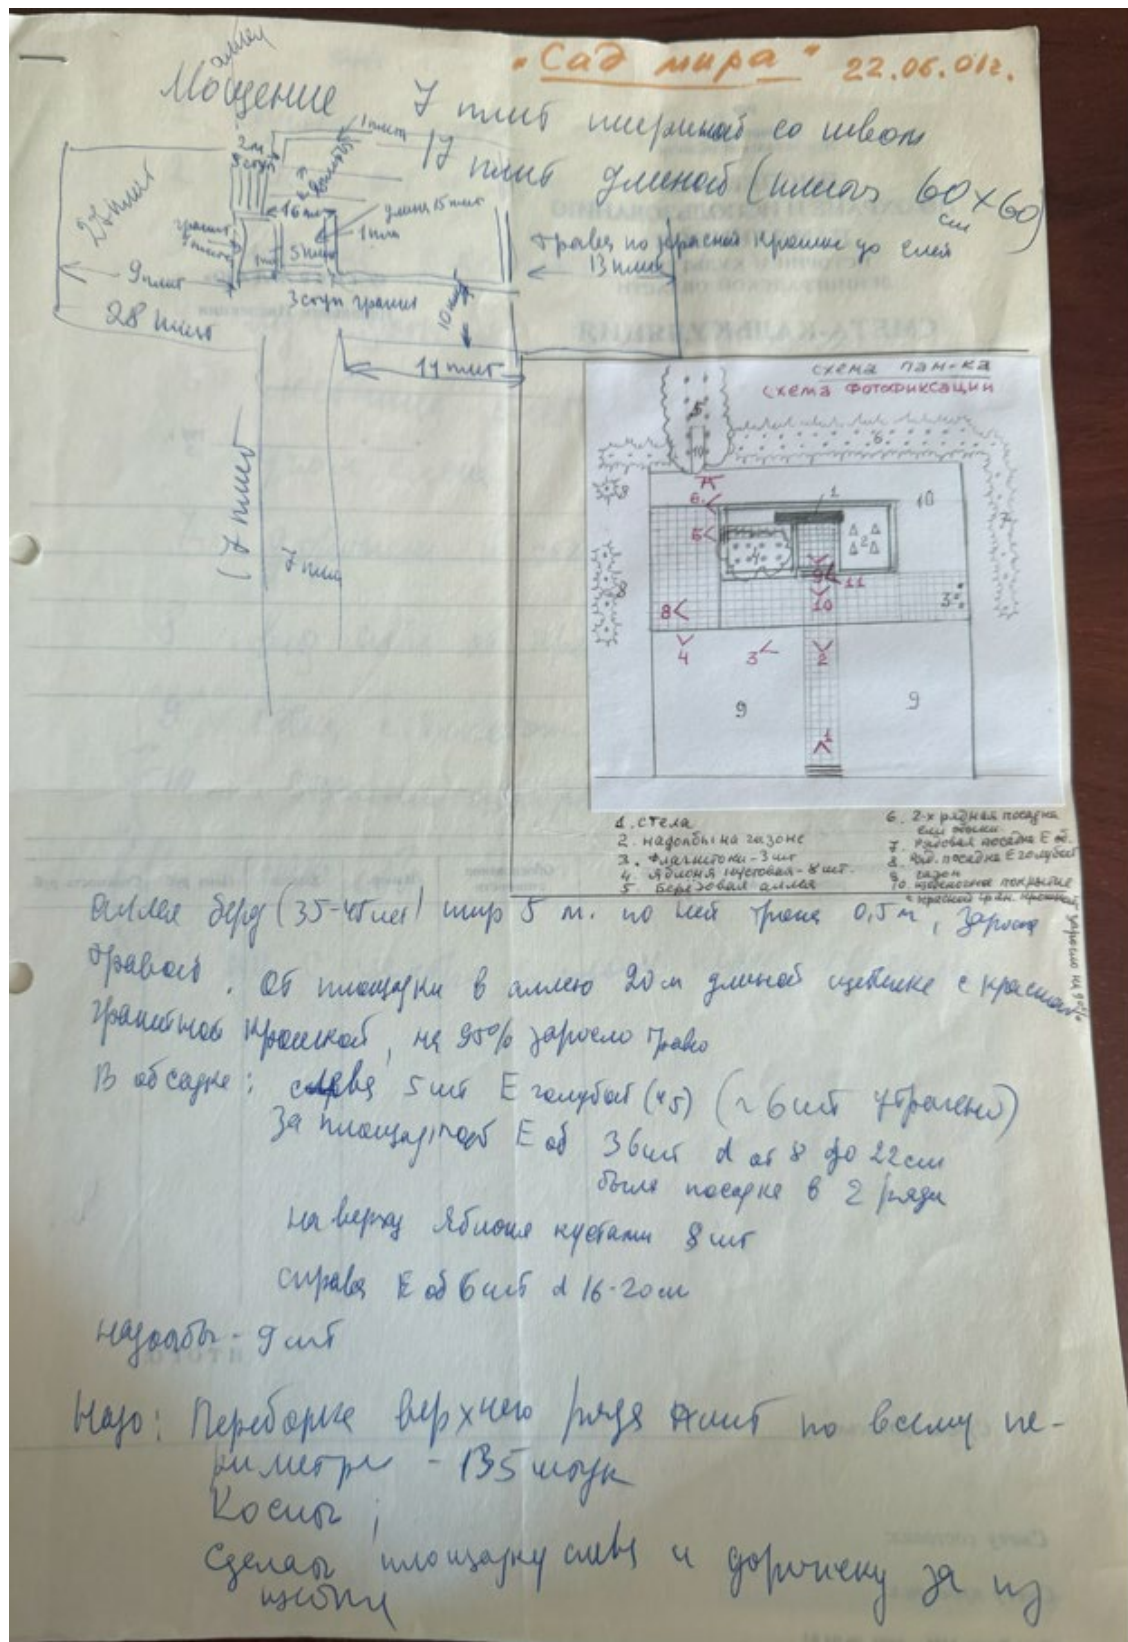 "Сад мира" 22.06.01г.
аллея
Мощение 7 плит шириной со швом
17 плит длиной (плиты 60х60)
см
1 плита
2 м
5 ступ
27 плит
16 пл
длина 15 плит
1 плит
5 плит
9 плит
3 ступ гранит
28 плит
10 плит
трава по красной крошке до елей
13 плит
14 плит
17 плит
7 плит
схема пам-ка
схема фотофиксации
5
10
6
8
7
1
10
6
5
4
2
9
11
8
10
3
4
3
2
9
9
1
1. стела
2. надолбы на газоне
3. Флагштоки - 3 шт
4. Яблоня кустовая - 8 шт.
5 Березовая аллея
6. 2-х рядная посадка
ели
7. Рядовая посадка Е об.
8. Ряд. посадка Е голубой
9. газон
10. щебеночное покрытие
с красной гран. крошкой, заросло на 95%
аллея берез (35-45 лет) шир 5 м. по ней тропа 0,5 м, заросла
травой. От площадки в аллею 20 м длиной щебенка с красной
гранитной крошкой, на 95% заросло траво
В обсадке: слева 5 шт Е голубой (45) (~6 шт утрачено)
За площадкой Е об 36 шт d от 8 до 22 см
была посадка в 2 ряда
на верху Яблоня кустами 8 шт
справа Е об 6 шт d 16-20 см
надолбы - 9 шт
Надо: Переборка верхнего ряда плит по всему пе-
риметру - 135 штук
Косить;
Сделать площадку слева и дорожку за из
щебня